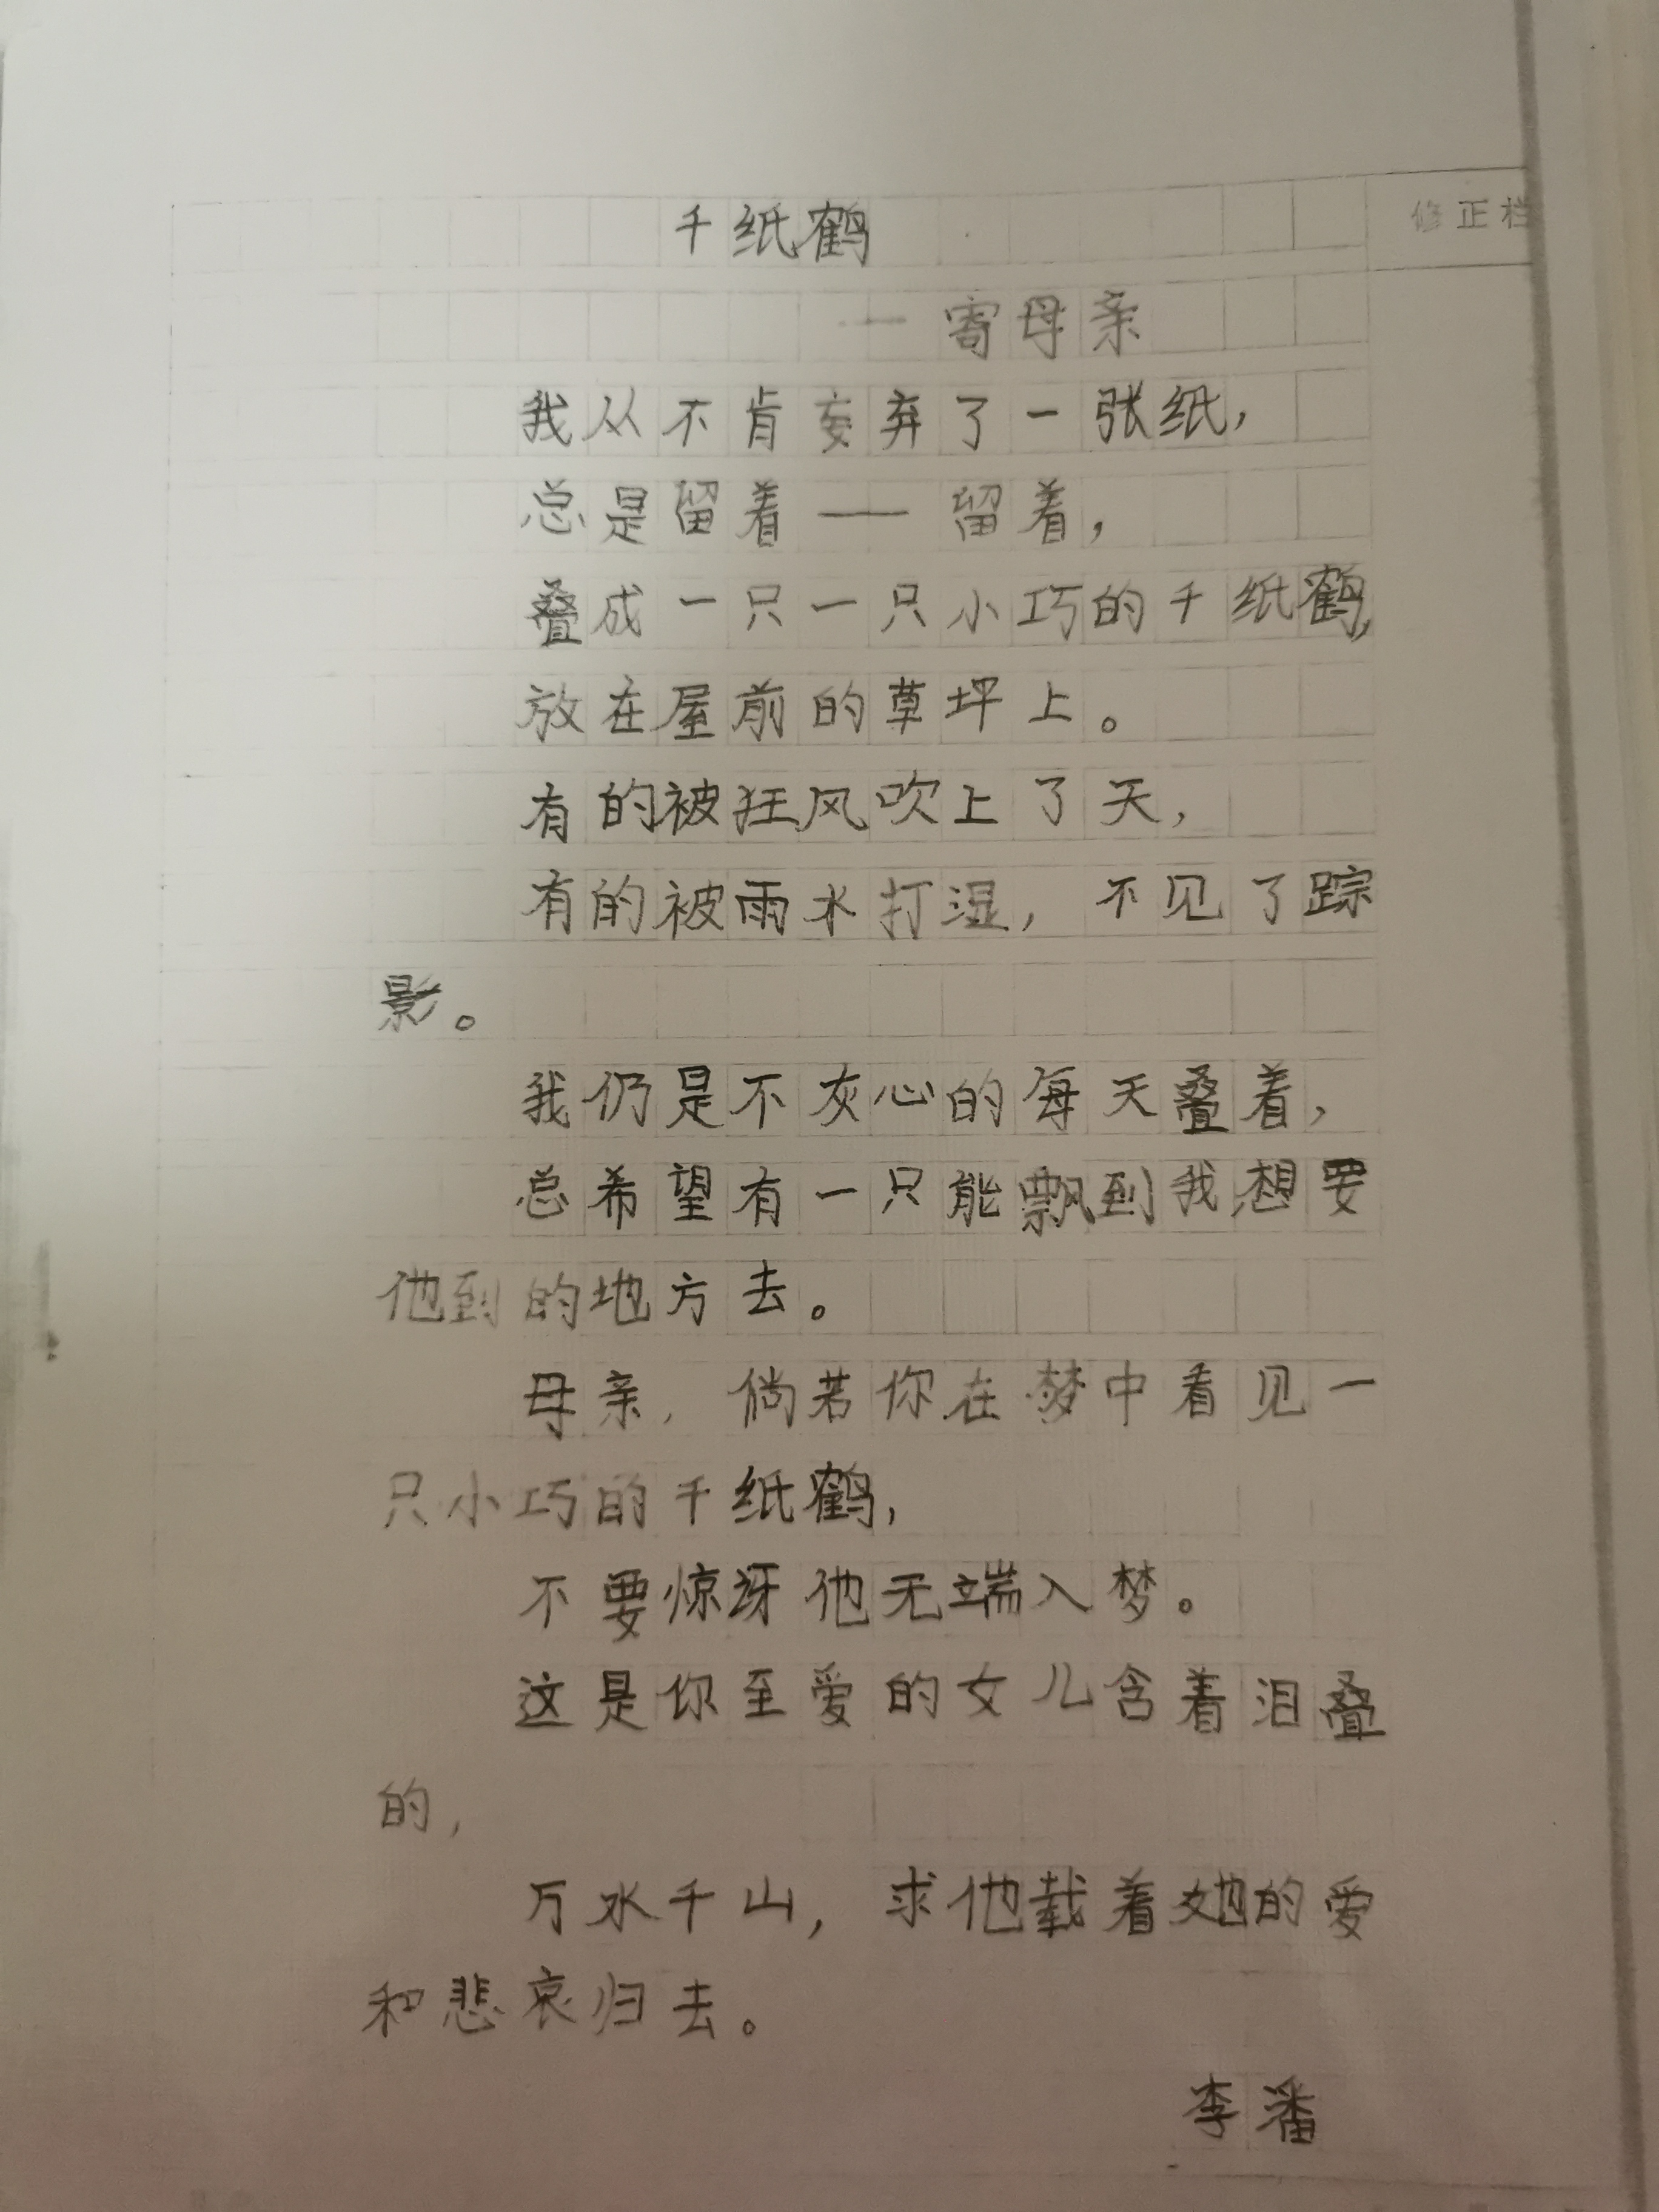 千纸鹤
修正栏
一寄母亲
我从不肯妄弃了一张纸，
总是留着——留着，
叠成一只一只小巧的千纸鹤，
放在屋前的草坪上。
有的被狂风吹上了天，
有的被雨水打湿，不见了踪
影。
我仍是不灰心的每天叠着，
总希望有一只能飘到我想要
他到的地方去。
母亲，倘若你在梦中看见一
只小巧的千纸鹤，
不要惊讶他无端入梦。
这是你至爱的女儿含着泪叠
的，
万水千山，求他载着她的爱
和悲哀归去。
李潘